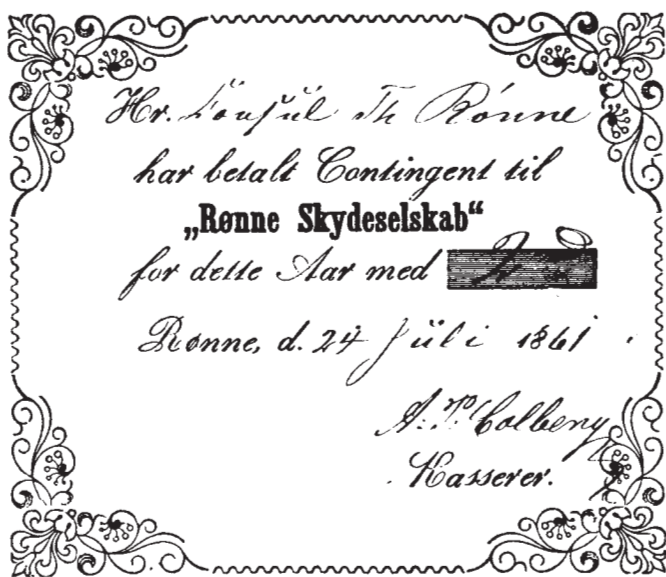 Hr. Consul Th Rønne
har betalt Contingent til
„Rønne Skydeselskab“
for dette Aar med 2
Rønne, d. 24 Juli 1861
Kasserer.